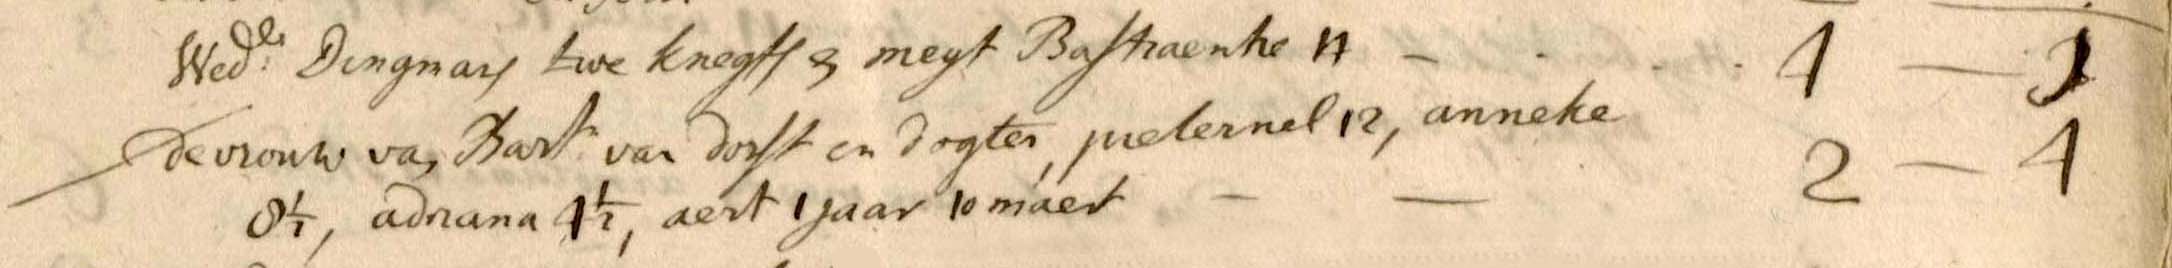 Wed:e Dingmans twe knegts en meyt Bastiaenke 11 - 4 — 1
de vrouw van Bart van dorst en dogter, peternel 12, anneke 2 — 4
8½, adriana 4½, aert 1 jaar 10 maert - —